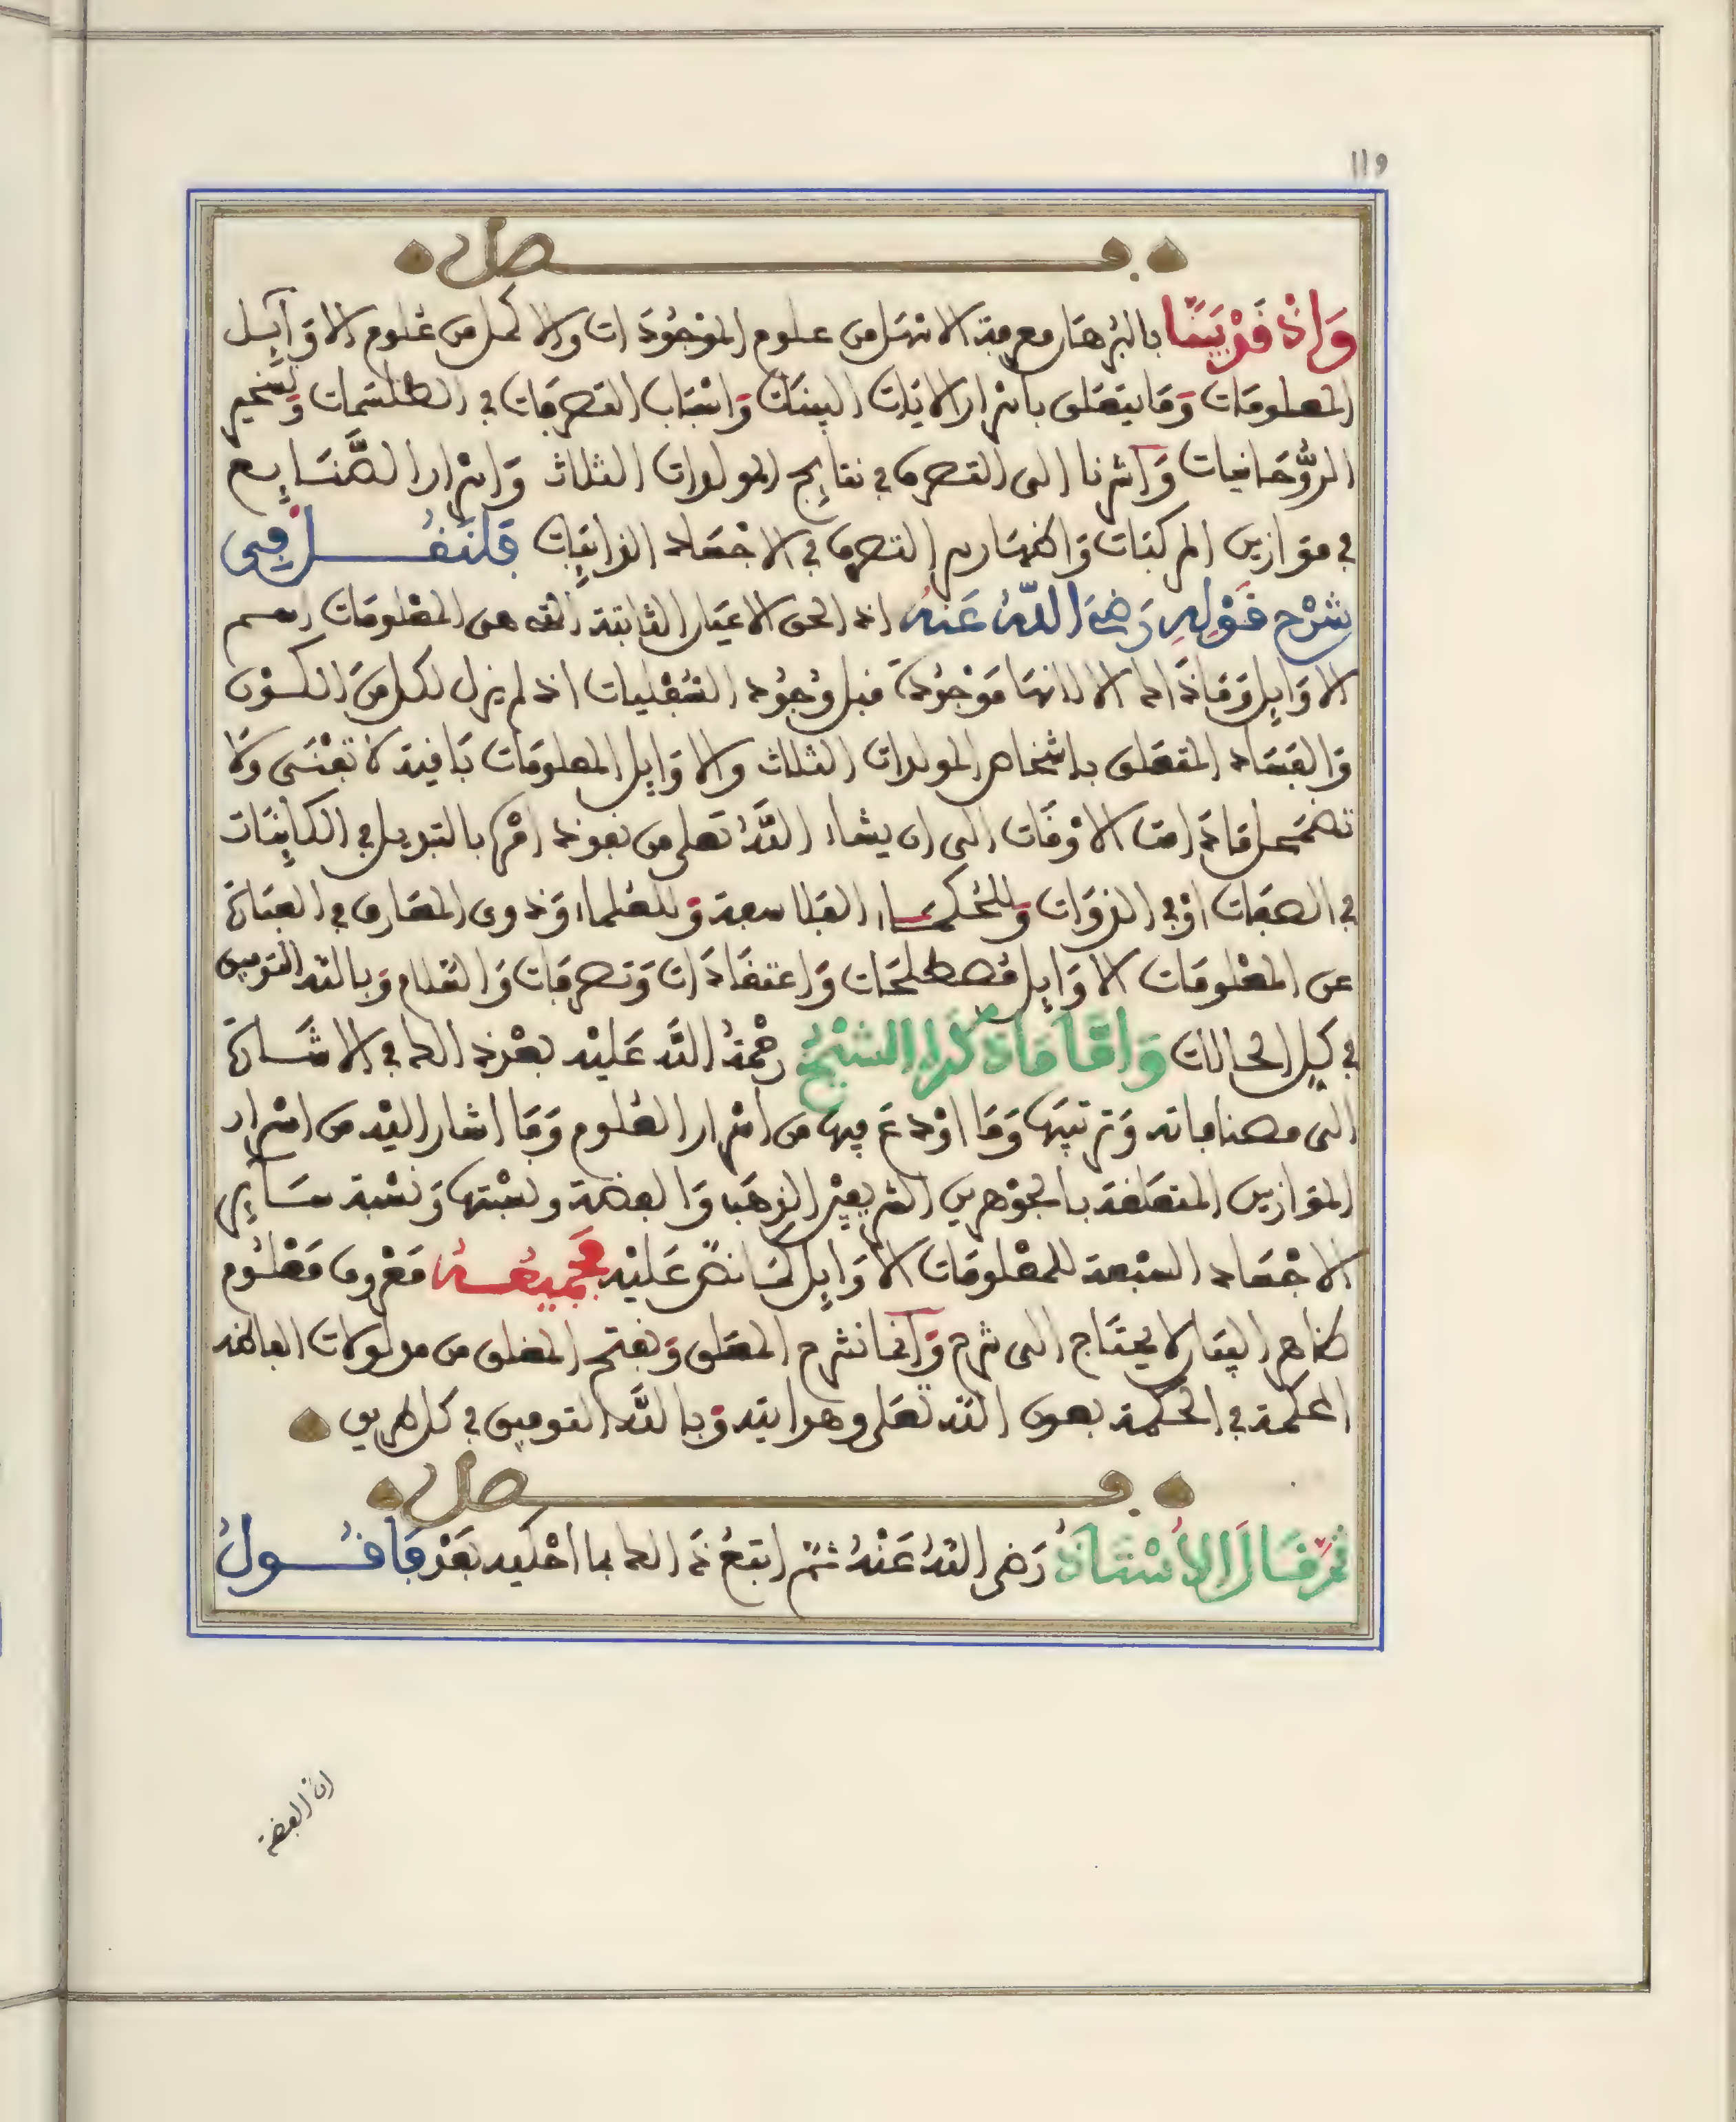 119
فصل
وإذ قد بينا بالبرهان معرفة الأفضل من علوم الموجودات والأكمل من علوم الأوايل
المعلومات وما يتعلق بأسرار الآيات البينات وأسباب التصرفات في الطلسمات وتسخير
الروحانيات وأشرنا إلى التصرف في نتايج المولدات الثلاث وأسرار الصنايع
في موازين المركبات وإظهار سر التصرف في الأجساد الذايبات فلنقل في
شرح قوله رضي الله عنه إذ الحق الأعيان الثابتة التي هي المعلومات اسم
الأوايل وما ذاك إلا لأنها موجودة قبل وجود السفليات إذ لم يزل لكل من الكون
والفساد المتعلق بأشخاص المولدات الثلاث والأوايل المعلومات باقية لا تفنى ولا
تضمحل ما دامت الأوقات إلى أن يشاء الله تعلى من نفوذ أمره بالتبديل في الكاينات
في الصفات أو في الذوات وللحكماء الفلاسفة وللعلماء وذوي المعارف في العبارة
عن المعلومات الأوايل مصطلحات واعتقادات وتصرفات والسلام وبالله التوفيق
في كل الحالات وأما ما ذكره الشيخ رحمة الله عليه بعد ذلك في الإشارة
إلى مصنفاته وترتيبها وما أودع فيها من أسرار العلوم وما أشار إليه من أسرار
الموازين المتعلقة بالجوهرين الشريفين الذهب والفضة ونسبتها ونسبة ساير
الأجساد السبعة للمعلومات الأوايل كما نص عليه فجميعه معروف معلوم
ظاهر البيان لا يحتاج إلى شرح وإنما نشرح المعلق ونفتح المغلق من مدلولات ألفاظه
المحكمة في الحكمة بعون الله تعلى وهدايته وبالله التوفيق في كل طريق
فصل
ثم قال الأستاذ رضي الله عنه ثم اتبع ذلك بما أحكيه بعد فأقول
إن الفضة